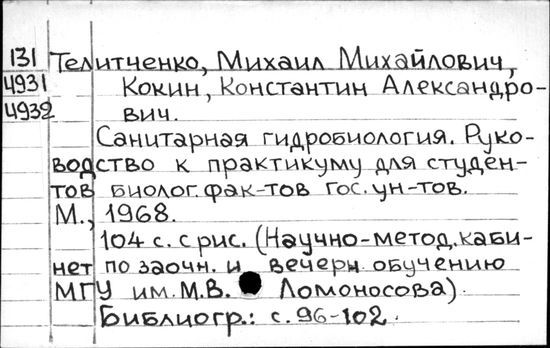 131 Телитченко, Михаил Михайлович,
4931 Кокин, Константин Александро-
4932 вич.
Санитарная гидробиология. Руко-
водство к практикуму для студен-
тов биолог. фак-тов гос. ун-тов.
М., 1968.
104 с. с рис. (Научно-метод. каби-
нет по заочн. и вечерн. обучению
МГУ им. М.В. Ломоносова).
Библиогр.: с. 96-102.